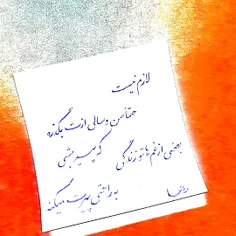 لازم نیست
حتما سن و سالی ازت بگذره
که پیر بشی
بعضی از غم ها تو زندگی
به راحتی پیرت میکنه